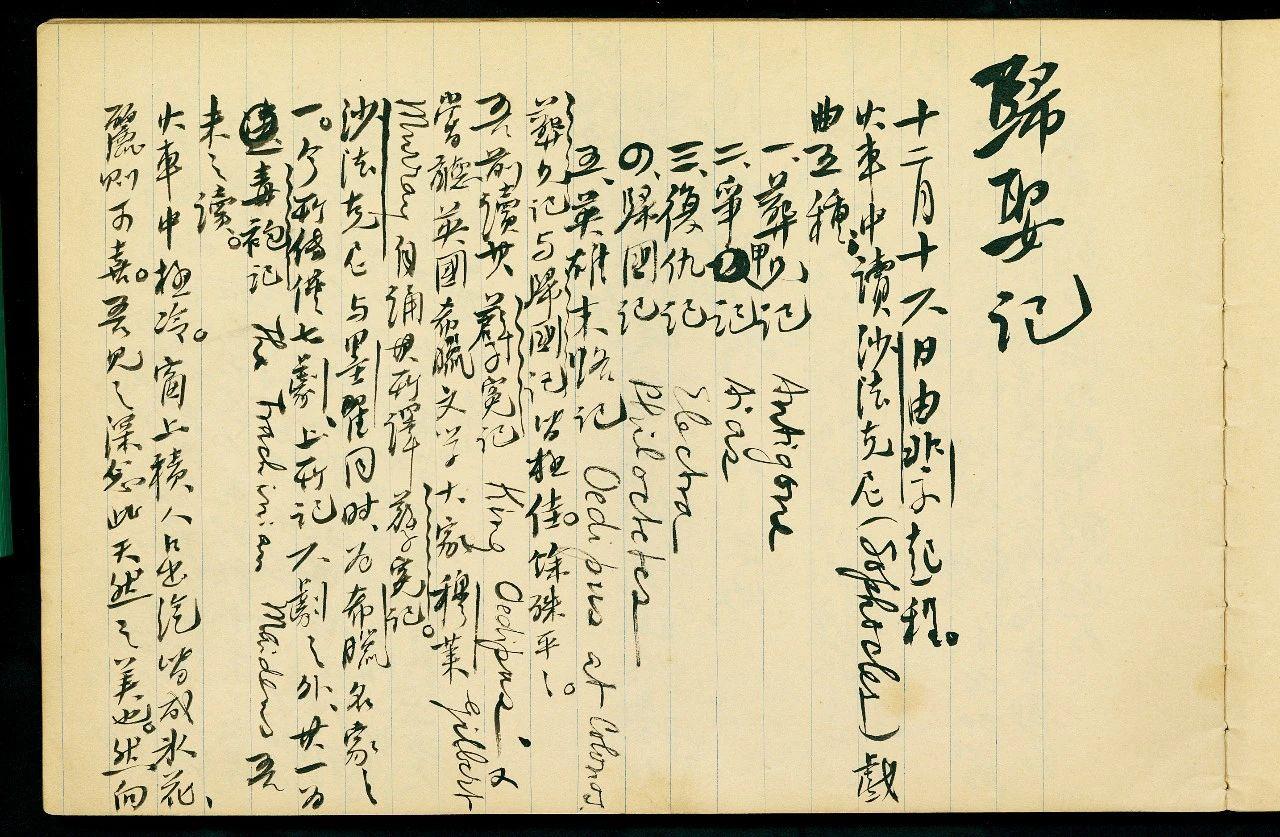 歸娶記
十二月十六日由北京起程。
火車中讀沙法克尼(Sophocles)戲
曲五種:
一、葬兄記 Antigone
二、爭甲記 Aias
三、復仇記 Electra
四、歸國記 Philoctetes
五、英雄末路記 Oedipus at Colonos.
葬兄記与歸國記皆極佳。餘殊平平。
吾前讀其孽冤記 King Oedipus, &
嘗聽英國希臘文學大家穆萊 Gilbert
Murray 自誦其所譯孽冤記。
沙法克尼与墨翟同時,为希臘名家之
一。今所傳僅七劇,上所記六劇之外,其一为
毒袍記 The Trachinian Maidens 吾
未之讀。
火車中極冷。窗上積人口出汽皆成冰花,
麗則可喜。吾見之深念此天然之美也。然向